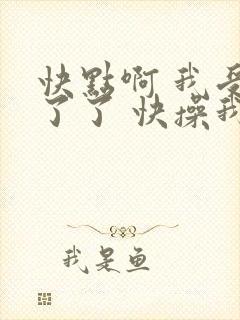 快點啊我受
了了 快操我
我是鱼